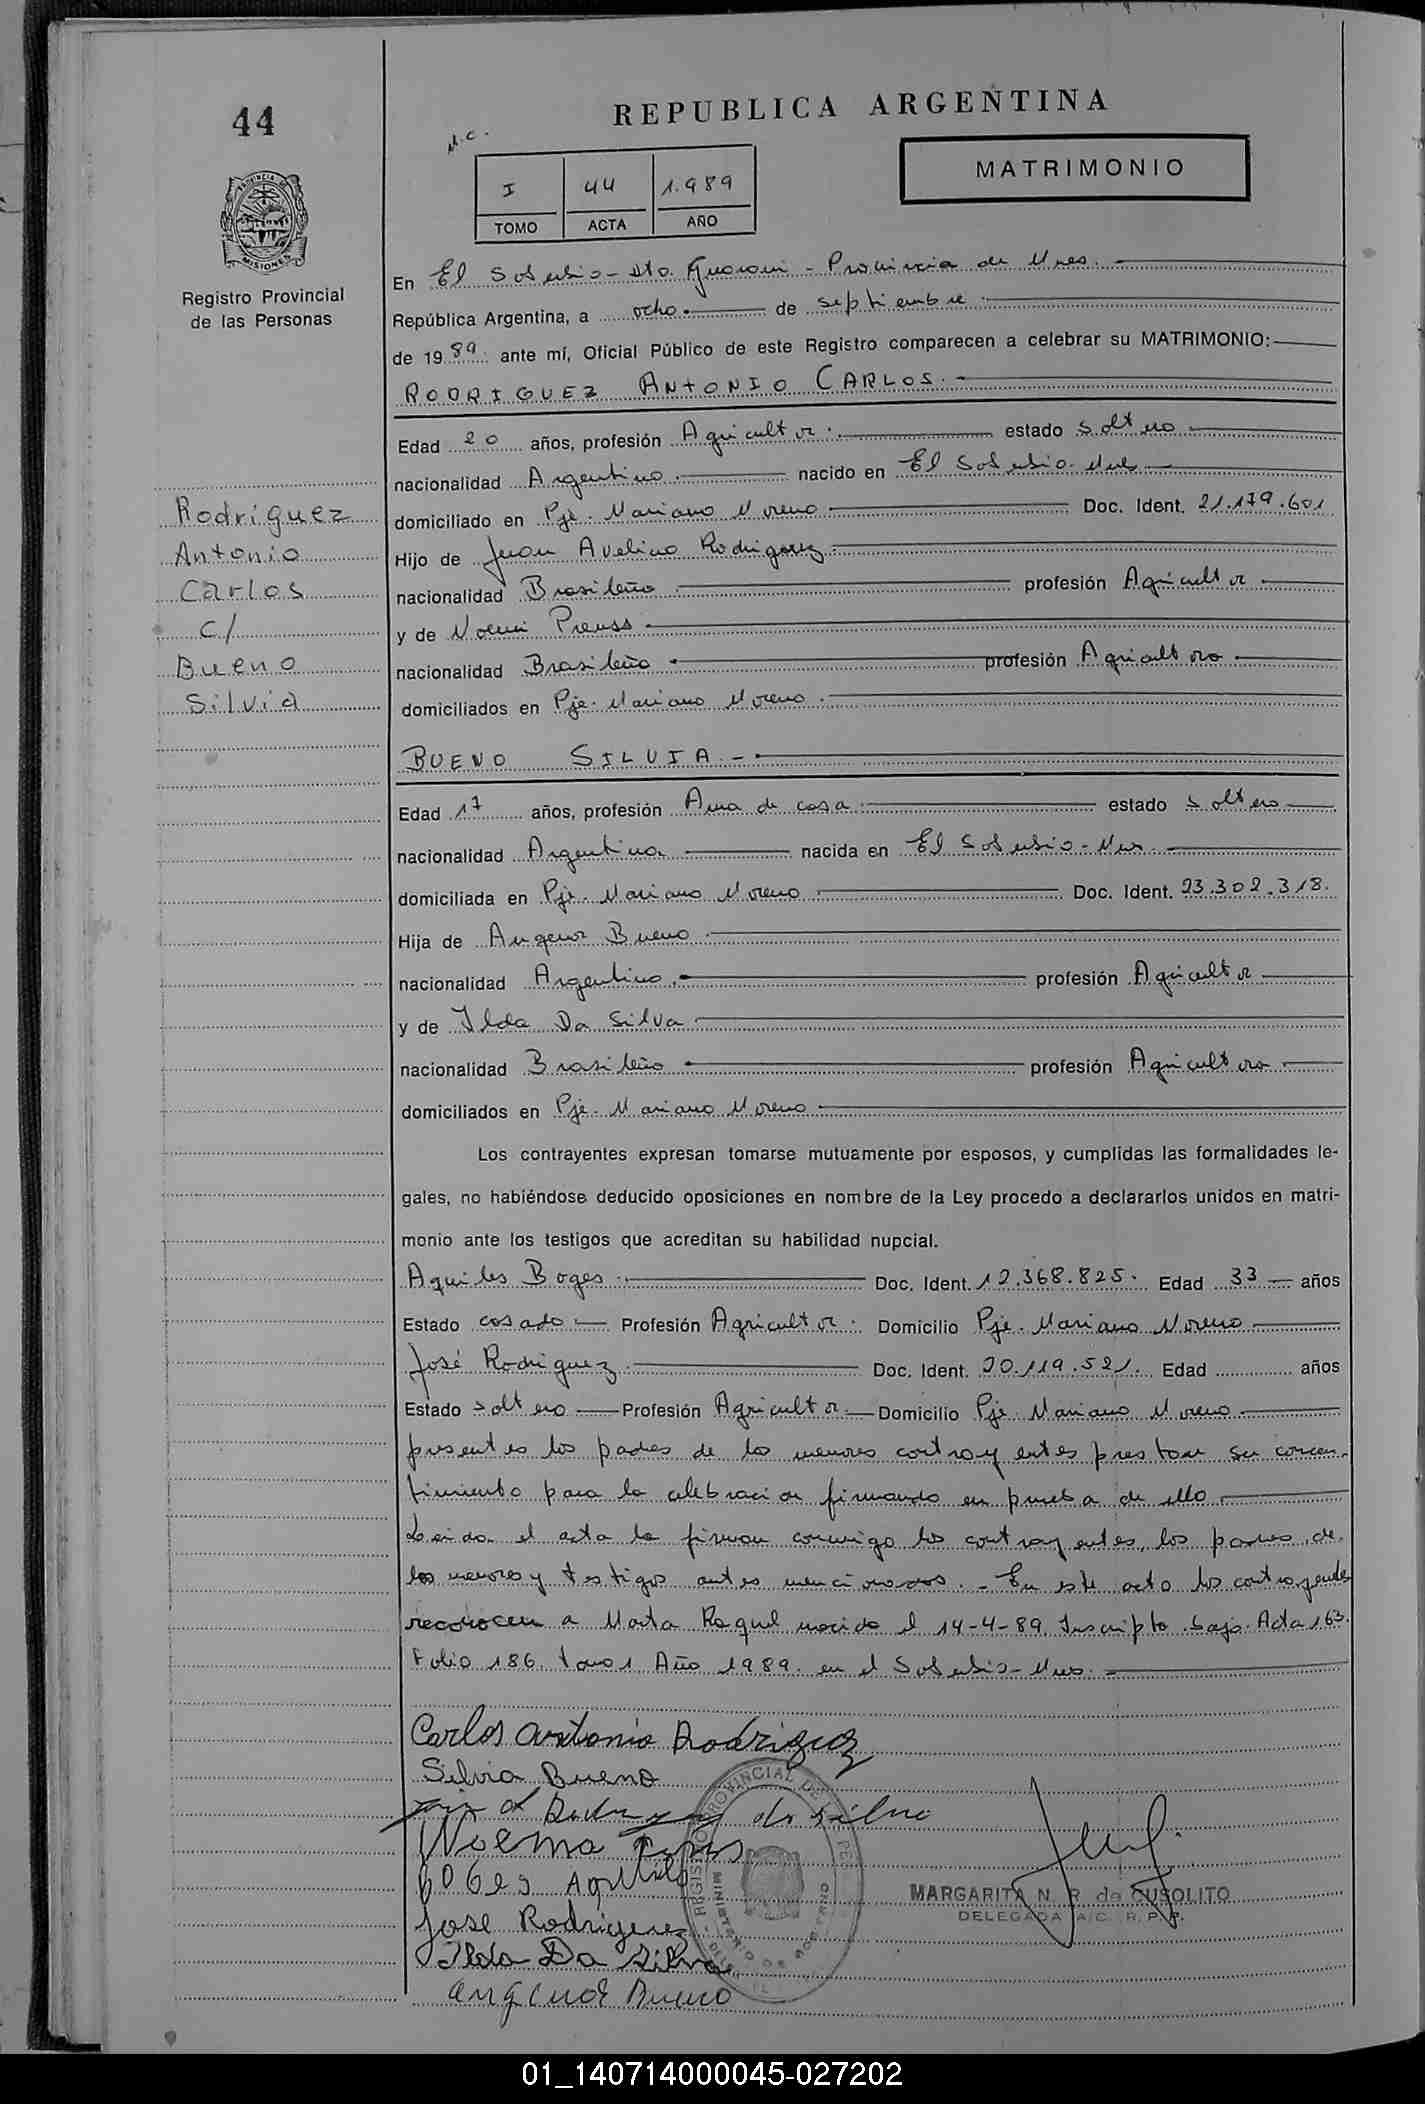 44
REPUBLICA ARGENTINA
M.C.
MATRIMONIO
I 44 1.989
TOMO ACTA AÑO
PROVINCIA DE MISIONES
Registro Provincial
de las Personas
En El Soberbio - Dto. Guarani - Provincia de Mnes.
República Argentina, a ocho. de septiembre
de 1989. ante mí, Oficial Público de este Registro comparecen a celebrar su MATRIMONIO:
RODRIGUEZ ANTONIO CARLOS.
Edad 20 años, profesión Agricultor. estado soltero
nacionalidad Argentino nacido en El Soberbio - Mnes
domiciliado en Pje. Mariano Moreno Doc. Ident. 21.179.601
Hijo de Juan Avelino Rodriguez
nacionalidad Brasileño profesión Agricultor
y de Noemi Preuss
nacionalidad Brasileña profesión Agricultora
domiciliados en Pje. Mariano Moreno
Rodríguez
Antonio
Carlos
C/
Bueno
Silvia
BUENO SILVIA.-
Edad 17 años, profesión Ama de casa estado soltera
nacionalidad Argentina nacida en El Soberbio - Mnes
domiciliada en Pje. Mariano Moreno Doc. Ident. 23.302.318.
Hija de Angenor Bueno
nacionalidad Argentino. profesión Agricultor
y de Ilda Da Silva
nacionalidad Brasileña profesión Agricultora
domiciliados en Pje. Mariano Moreno
Los contrayentes expresan tomarse mutuamente por esposos, y cumplidas las formalidades le-
gales, no habiéndose deducido oposiciones en nombre de la Ley procedo a declararlos unidos en matri-
monio ante los testigos que acreditan su habilidad nupcial.
Aquiles Boges Doc. Ident. 12.368.825. Edad 33 años
Estado casado Profesión Agricultor. Domicilio Pje. Mariano Moreno
José Rodriguez Doc. Ident. 20.119.521. Edad años
Estado soltero Profesión Agricultor Domicilio Pje. Mariano Moreno
presentes los padres de los menores contrayentes prestan su concen-
timiento para la celebracion firmando en prueba de ello
Leida el acta la firman conmigo los contrayentes, los padres de
los menores y testigos antes mencionados. - En este acto los contrayentes
reconocen a Marta Raquel nacida el 14-4-89. Inscripta bajo Acta 163.
Folio 186. tomo 1 Año 1989. en el Soberbio - Mnes.
Carlos Antonio Rodriguez
Silvia Bueno
da silva
Noema
Boges Aquiles
Jose Rodriguez
Ilda Da Silva
Angenor Bueno
REGISTRO PROVINCIAL DE LAS PE
MINISTERIO DE GOBIERNO
MARGARITA N. R. de CUSOLITO
DELEGADA A/C. R. P. P.
01_140714000045-027202